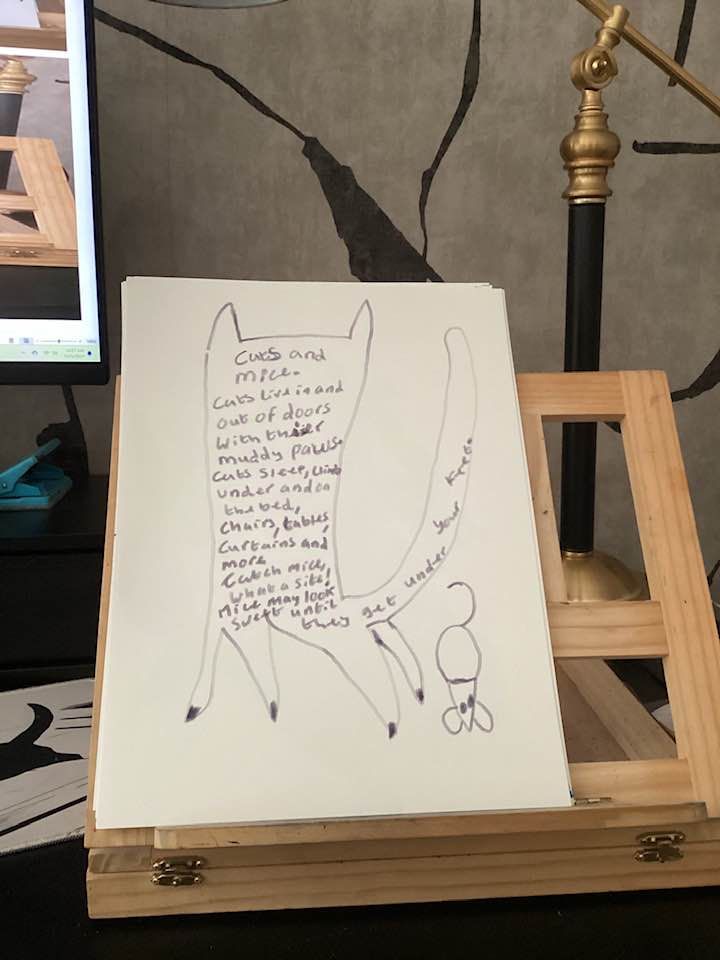 Cats and
mice.
Cats live in and
out of doors
with thier
muddy paws.
Cats sleep, climb
under and on
the bed,
chairs, tables,
curtains and
more
Catch mice,
what a site!
Mice may look
sweet until
they get under your feet.